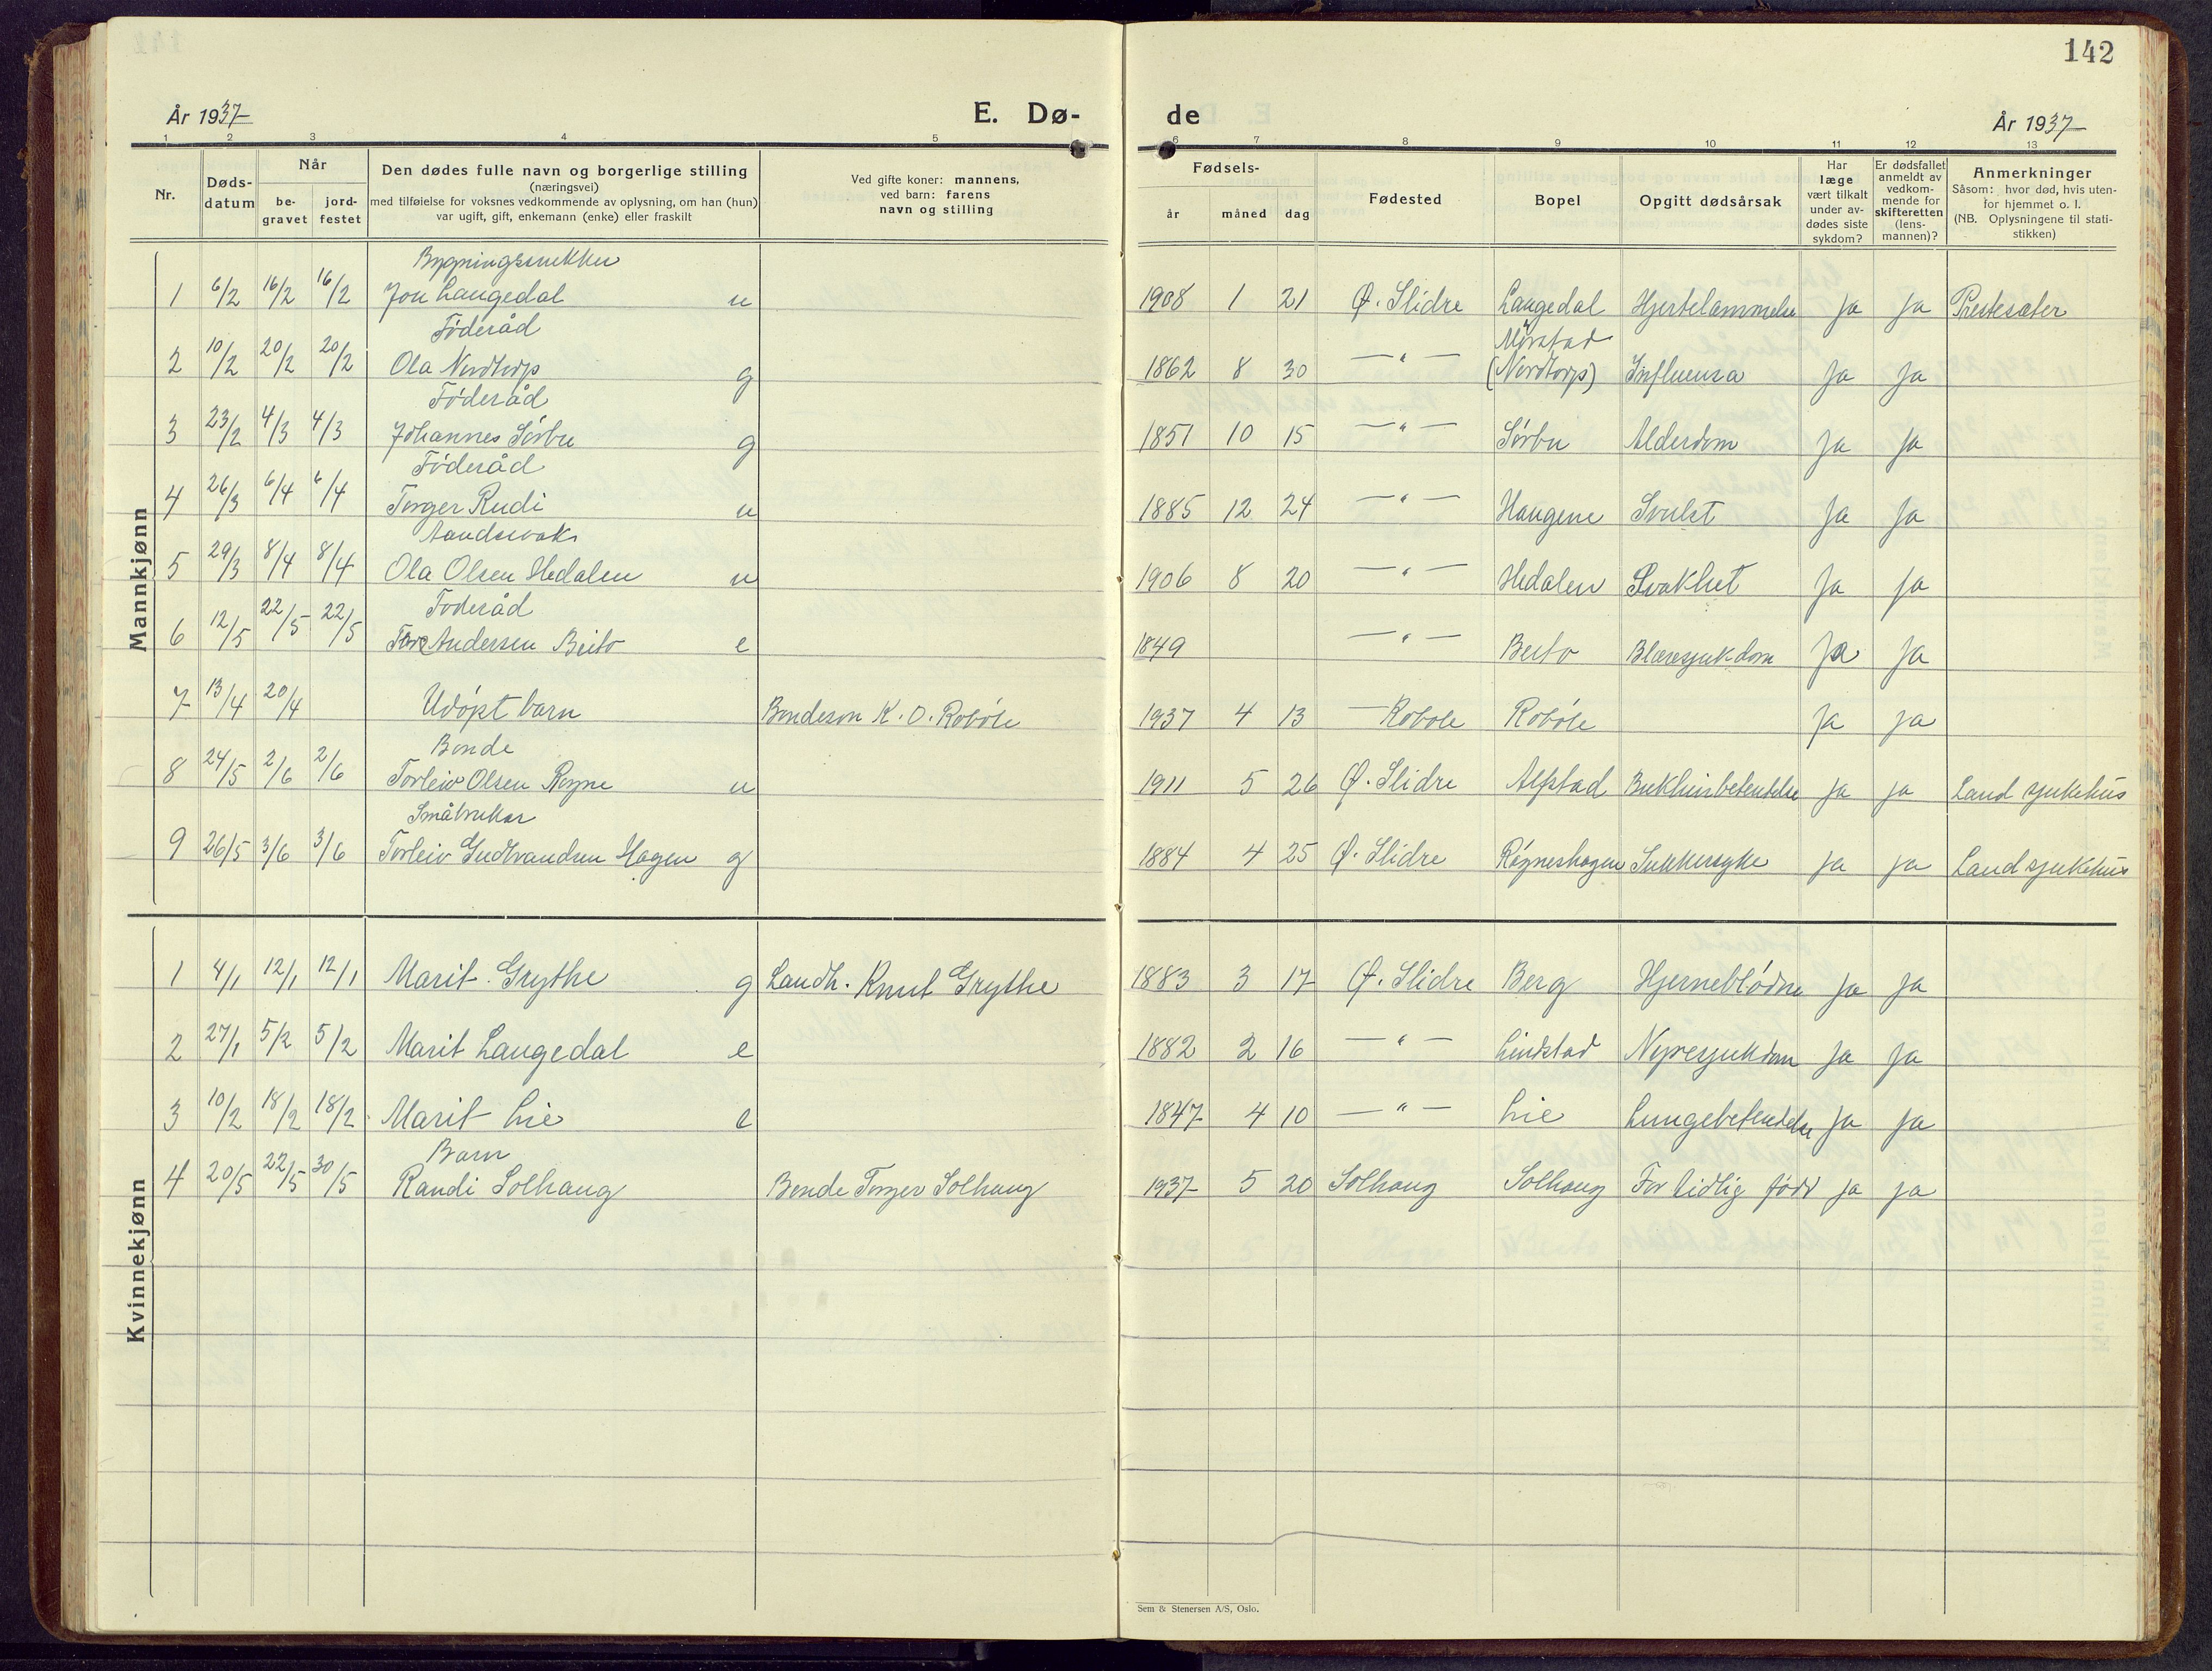 142
År 1937
E. Dø-
de
År 1937
1 2 3 4 5 6 7 8 9 10 11 12 13
Nr.
Døds-
datum
Når
be-
gravet
jord-
festet
Den dødes fulle navn og borgerlige stilling
(næringsvei)
med tilføielse for voksnes vedkommende av oplysning, om han (hun)
var ugift, gift, enkemann (enke) eller fraskilt
Ved gifte koner: mannens,
ved barn: farens
navn og stilling
Fødsels-
år måned dag
Fødested
Bopel
Opgitt dødsårsak
Har
læge
vært tilkalt
under av-
dødes siste
sykdom?
Er dødsfallet
anmeldt av
vedkom-
mende for
skifteretten
(lens-
mannen)?
Anmerkninger
Såsom: hvor død, hvis uten-
for hjemmet o. l.
(NB. Oplysningene til stati-
stikken)
Mannkjønn
Bygningssnekker
1 6/2 16/2 16/2 Jon Langedal u 1908 1 21 Ø. Slidre Langedal Hjertelammelse Ja Ja Prestesæter
Föderåd
Mörstad
2 10/2 20/2 20/2 Ola Nordtorp g 1862 8 30 — " — (Nordtorp) Influensa Ja Ja
Föderåd
3 23/2 4/3 4/3 Johannes Sörbu g 1851 10 15 — " — Sörbu Alderdom Ja Ja
Föderåd
4 26/3 6/4 6/4 Torger Rudi u 1885 12 24 — " — Haugene Svulst Ja Ja
Aandssvak
5 29/3 8/4 8/4 Ola Olsen Hedalen u 1906 8 20 — " — Hedalen Svakhet Ja Ja
Föderåd
6 12/5 22/5 22/5 Tore Andersen Beito e 1849 — " — Beito Blæresjukdom Ja Ja
7 13/4 20/4 Udöpt barn Bondeson K. O. Roböle 1937 4 13 Robole Roböle Ja Ja
Bonde
8 24/5 2/6 2/6 Torleiv Olsen Rogne u 1911 5 26 Ø. Slidre Alfstad Bukhinbetendelse Ja Ja Land sjukehus
Småbruker
9 26/5 3/6 3/6 Torleiv Gudbrandsen Hagen g 1884 4 25 Ø. Slidre Rögneshagen Sukkersyke Ja Ja Land sjukehus
Kvinnekjønn
1 4/1 12/1 12/1 Marit Grythe g Landh. Knut Grythe 1883 3 17 Ø. Slidre Berg Hjerneblödn. Ja Ja
2 27/1 5/2 5/2 Marit Langedal e 1882 2 16 — " — Lindstad Nyresjukdom Ja Ja
3 10/2 18/2 18/2 Marit Lie e 1847 4 10 — " — Lie Lungebetendelse Ja Ja
Barn
4 20/5 22/5 30/5 Randi Solhaug Bonde Torger Solhaug 1937 5 20 Solhaug Solhaug For tidlig född Ja Ja
Sem & Stenersen A/S, Oslo.